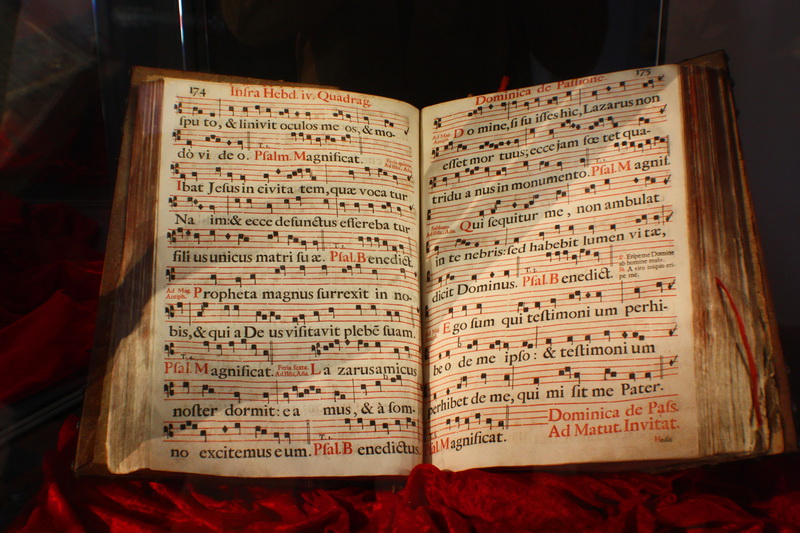 174
Infra Hebd. iv. Quadrag.
ſpu to, & linivit oculos me os, & mo-
dò vi de o. Pſalm. Magnificat.
Ibat Jesus in civita tem, quæ voca tur
Na im: & ecce defunctus effereba tur
fili us unicus matri ſu æ. Pſal. B enedict.
Ad Mag.
Antiph.
P ropheta magnus ſurrexit in no-
bis, & qui a De us viſitavit plebē ſuam.
Pſal. M agnificat. Feria ſexta. L a zarus amicus
noſter dormit: e a mus, & à ſom-
no excitemus e um. Pſal. B enedictus.
175
Dominica de Paſſione.
Ad Mag.
D o mine, ſi fu iſſes hic, Lazarus non
eſſet mor tuus; ecce jam fœ tet qua-
tridu a nus in monumento. Pſal. M agnif.
Qui ſequitur me, non ambulat
in te nebris: ſed habebit lumen vi tæ,
dicit Dominus. Pſal. B enedict.
℣. Eripe me Domine
ab homine malo.
℟. A viro iniquo eri-
pe me.
E go ſum qui teſtimoni um perhi-
be o de me ipſo: & teſtimoni um
perhibet de me, qui mi ſit me Pater.
Pſal. Magnificat.
Dominica de Paſs.
Ad Matut. Invitat.
Hodie